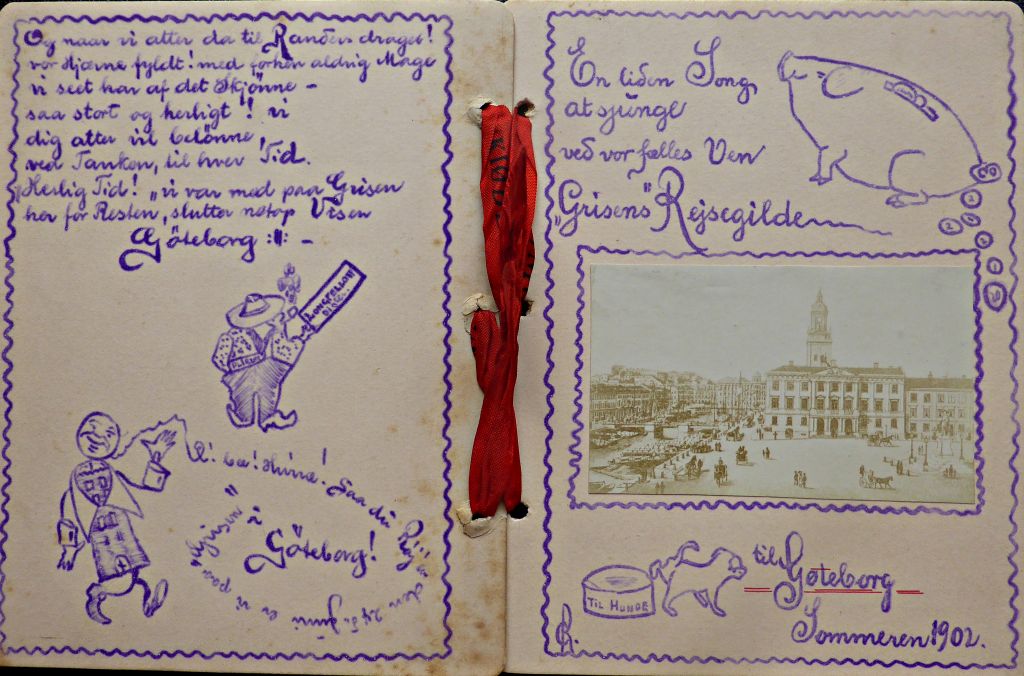 Og naar vi atter da til Randers draget!
vor Hjærne fyldt! med forhen aldrig Mage
vi seet har af det Skjönne –
saa stort og herligt! vi
dig atter vil belönne,
ved Tanken, til hver Tid.
"Herlig Tid! "vi var med paa Grisen
her for Resten, slutter netop Visen
Göteborg :||: –
LONGFELLOW
hinne! Saa du Röj
den 24 de Juni er vi paa "Grisen"
i
Göteborg!
En liden Song,
at sjunge
ved vor fælles Ven
"Grisens" Rejsegilde
TIL HUNDE
til Göteborg
Sommeren 1902.
R.